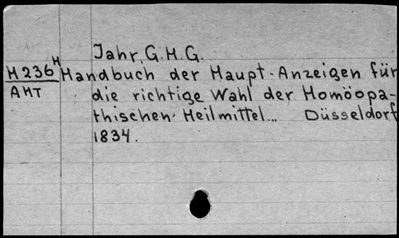 Jahr, G.H.G.
H 236 H Handbuch der Haupt-Anzeigen für
AHT die richtige Wahl der Homöopa-
thischen Heilmittel... Düsseldorf
1834.